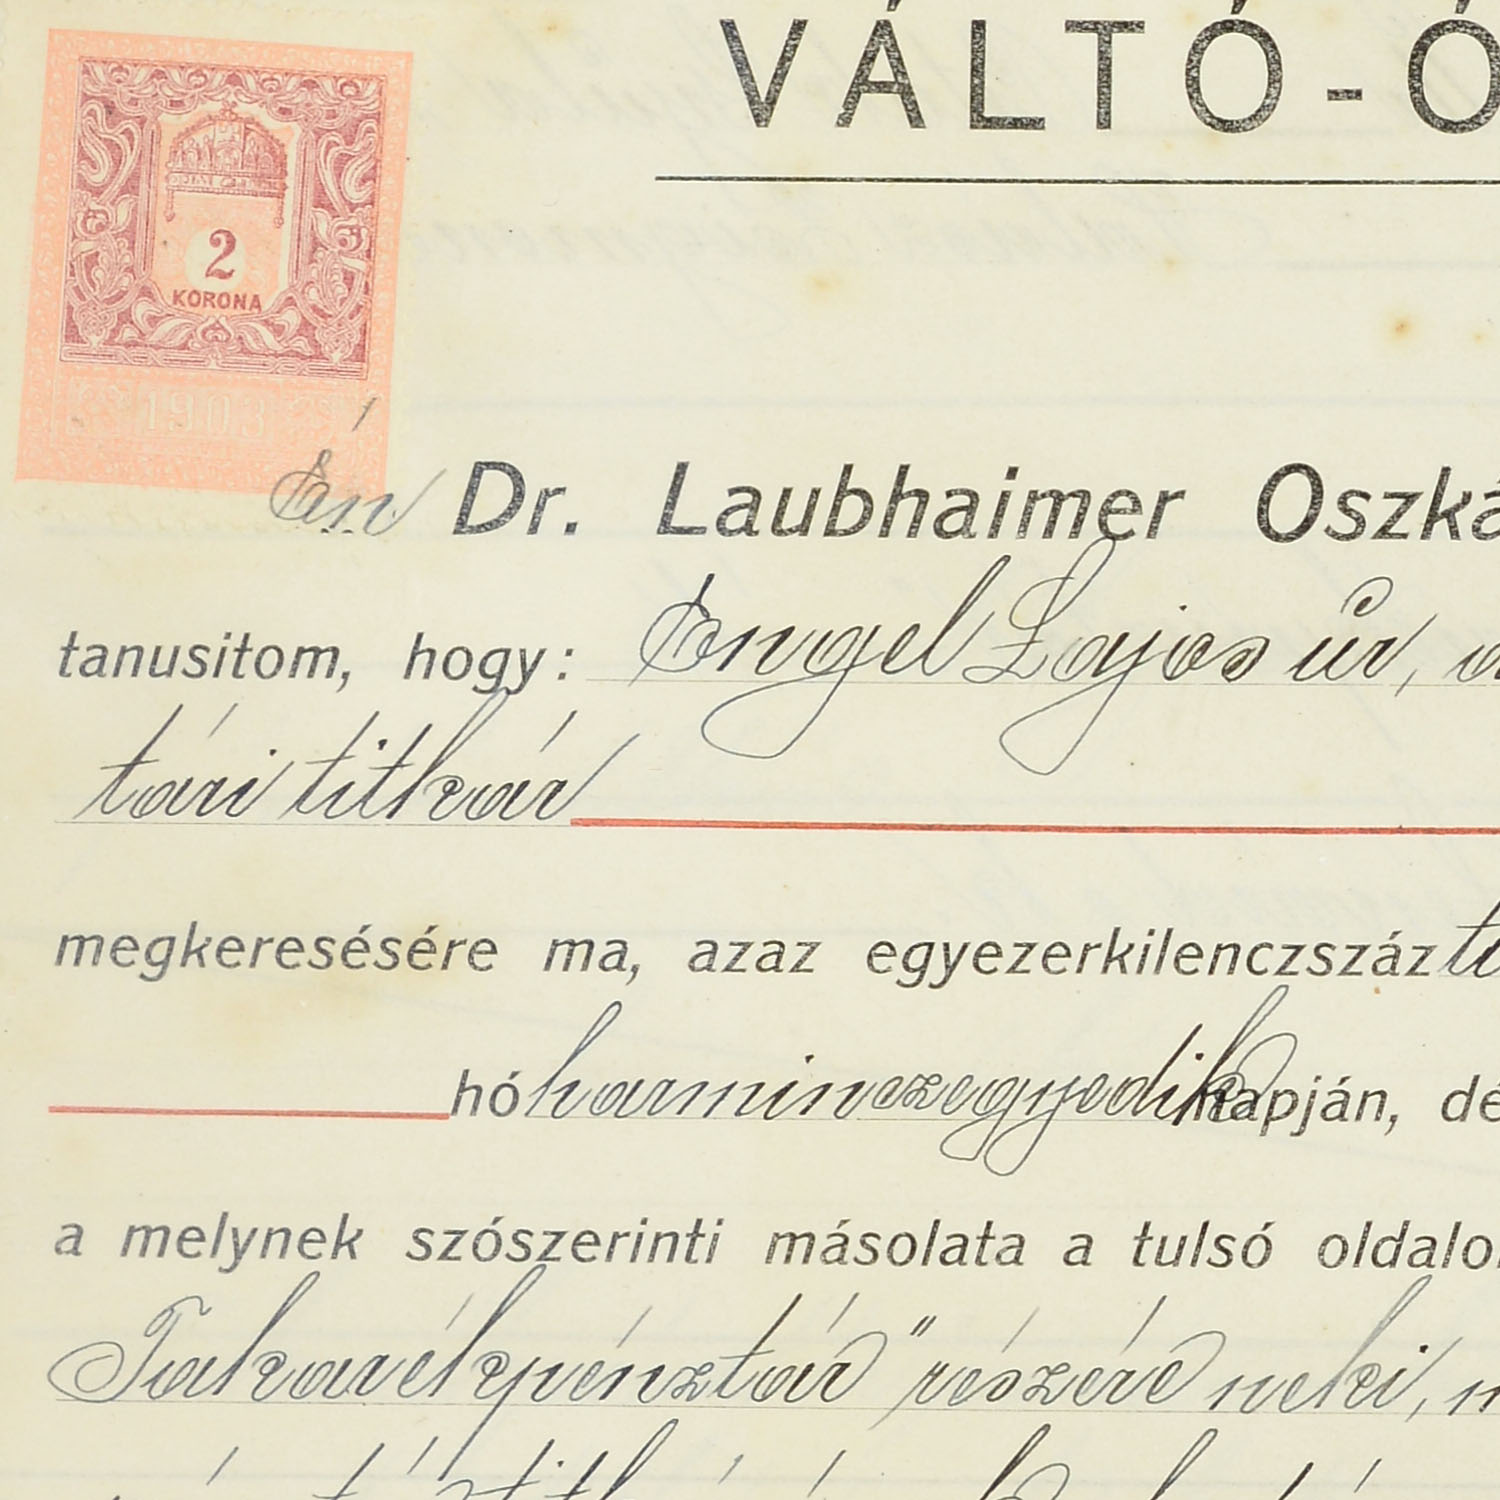 VÁLTÓ-Ó
2
KORONA
1903
Én Dr. Laubhaimer Oszká
tanusitom, hogy: Engel Lajos úr,
tári titkár
megkeresésére ma, azaz egyezerkilenczszáz
hó harminczegyedik napján, dé
a melynek szószerinti másolata a tulsó oldalo
Takarékpénztár" részére neki,